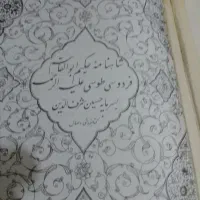 شاهنامه حکیم ابوالقاسم
فردوسی طوسی علیه الرحمه
بسرمایه حسین شرف الدین